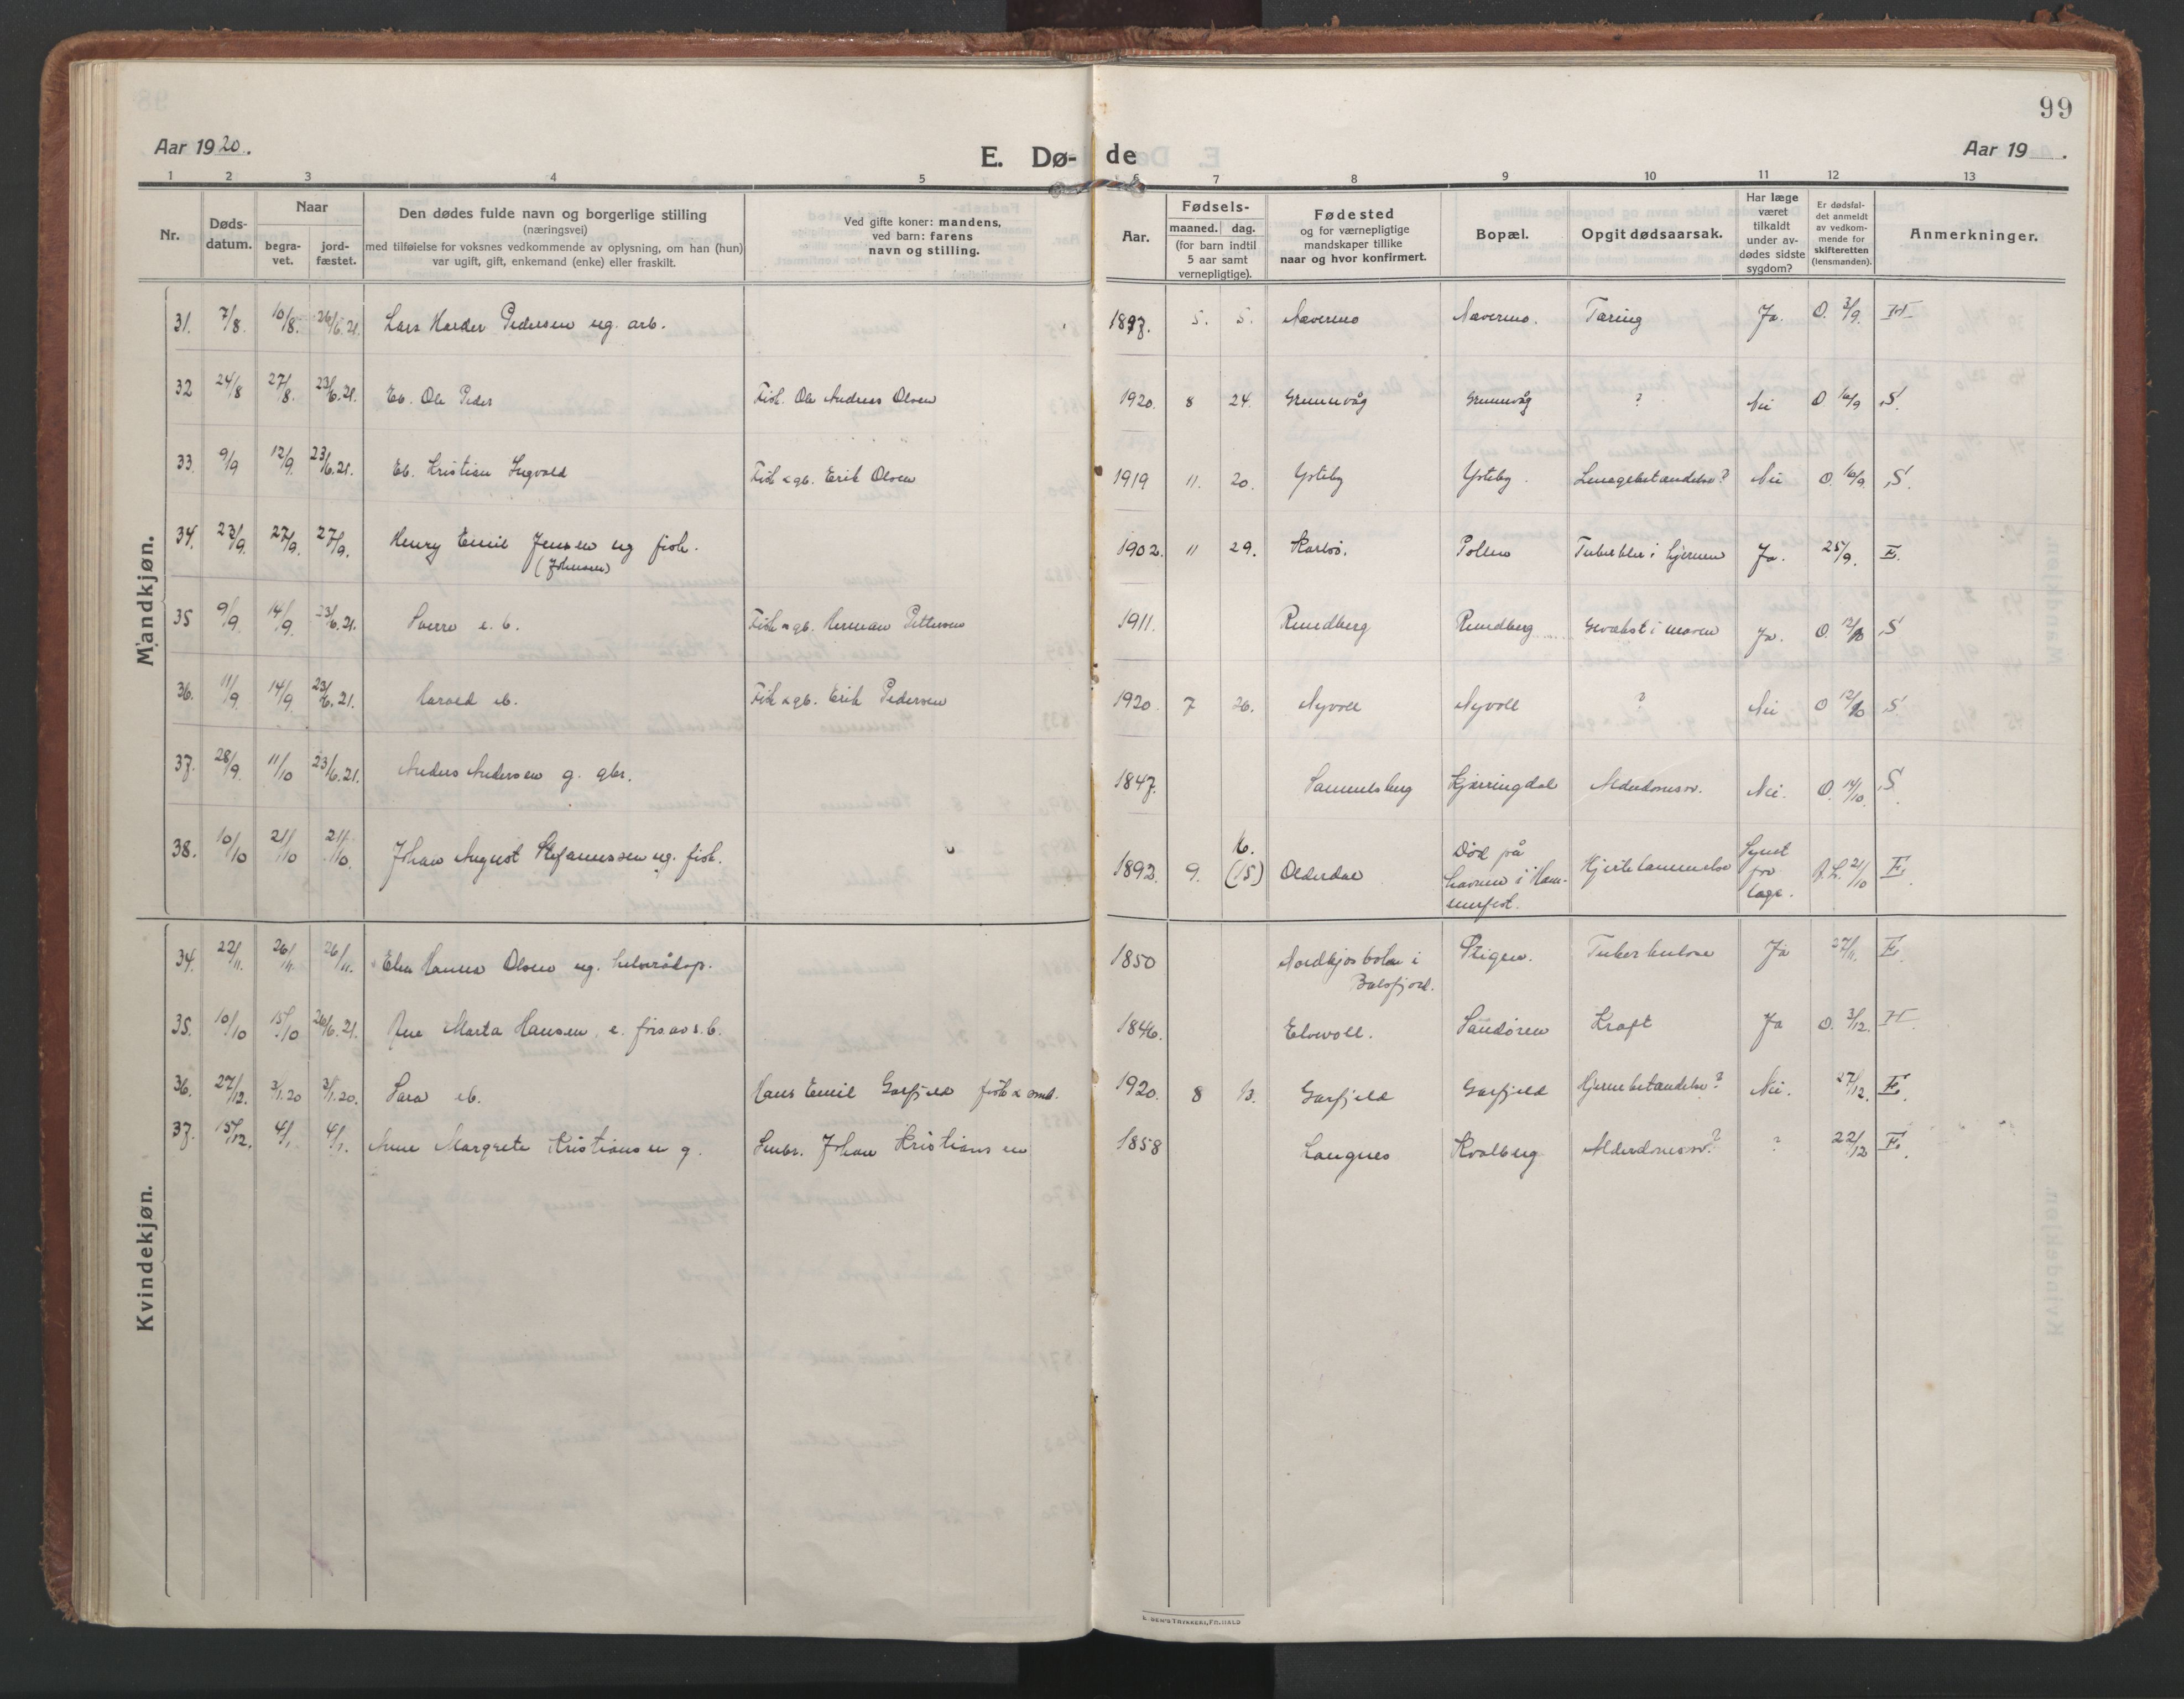 99
Aar 1920.
E. Dø-
de
Aar 19 .
1 2 3 4 5 6 7 8 9 10 11 12 13
Nr.
Døds-
datum.
Naar
begra-
vet.
jord-
fæstet.
Den dødes fulde navn og borgerlige stilling
(næringsvei)
med tilføielse for voksnes vedkommende av oplysning, om han (hun)
var ugift, gift, enkemand (enke) eller fraskilt.
Ved gifte koner: mandens,
ved barn: farens
navn og stilling.
Aar.
Fødsels-
maaned. dag.
(for barn indtil
5 aar samt
vernepligtige).
Fødested
og for værnepligtige
mandskaper tillike
naar og hvor konfirmert.
Bopæl.
Opgit dødsaarsak.
Har læge
været
tilkaldt
under av-
dødes sidste
sygdom?
Er dødsfal-
det anmeldt
av vedkom-
mende for
skifteretten
(lensmanden).
Anmerkninger.
Mandkjøn.
31. 7/8. 10/8. 26/6.21. Lars Hæder Pedersen ug. arb. 1897. 5. 5. Navermo Navermo. Tæring Ja. O. 3/9. H
32 24/8 27/8. 23/6.21. Eb. Ole Peder Fisk. Ole Andreas Olsen 1920. 8 24. Grunnvåg Grunnvåg ? Nei O 16/9 S.
33. 9/9 12/9. 23/6.21. Eb. Kristian Ingvald Fisk & gb. Erik Olsen 1919 11. 20. Ytteby Ytteby. Lungebetændelse? Nei O. 16/9. S.
34. 23/9. 27/9. 27/9. Henry Emil Jensen ug fisk.
(Johnsen)
1902. 11 29. Karlsö. Pollen Tuberkler i hjernen Ja. 25/9. E.
35 9/9. 14/9. 23/6.21. Sverre e. b. Fisk & gb. Herman Pettersen 1911. Rundberg Rundberg Gevækst i maven Ja. O. 12/10 S
36. 11/9 14/9. 23/6.21. Harald eb. Fisk & gb. Erik Pedersen 1920. 7 26. Nyvoll Nyvoll ? Nei O 12/10 S.
37. 28/9. 11/10 23/6.21. Anders Andersen g. gbr. 1847. Samuelsberg Kjærringdal Alderdomssv. Nei. O. 14/10. S.
38. 10/10 21/10 21/10. Johan August Stefanussen ug. fisk. 1892. 9. 16.
(15) Olderdal Död på
havnen i Ham-
merfest. Hjertelammelse Synet
for
læge. O.L. 21/10 E.
Kvindekjøn.
34. 22/11. 26/11. 26/11. Elen Hanna Olsen ug. 1850 Nordkjosbotn i
Balsfjord. Stigen. Tuberkulose Ja 27/11. E.
35. 10/10 15/10 26/6.21. Ane Marta Hansen, e. fors. av s. b. 1846. Elvevoll. Sandören Kraft Ja O. 3/12. H
36. 27/12. 3/1.20 3/1.20. Sara eb. Hans Emil Gasfjeld fisk & smb. 1920. 8 13. Gasfjeld Gasfjeld Hjernebetændelse? Nei. 27/12. E.
37. 15/12. 4/1. 4/1. Anne Margrete Kristiansen g. Smbr. Johan Kristiansen 1858 Langnes Kvalberg Alderdomssv.? ? 22/12 E.